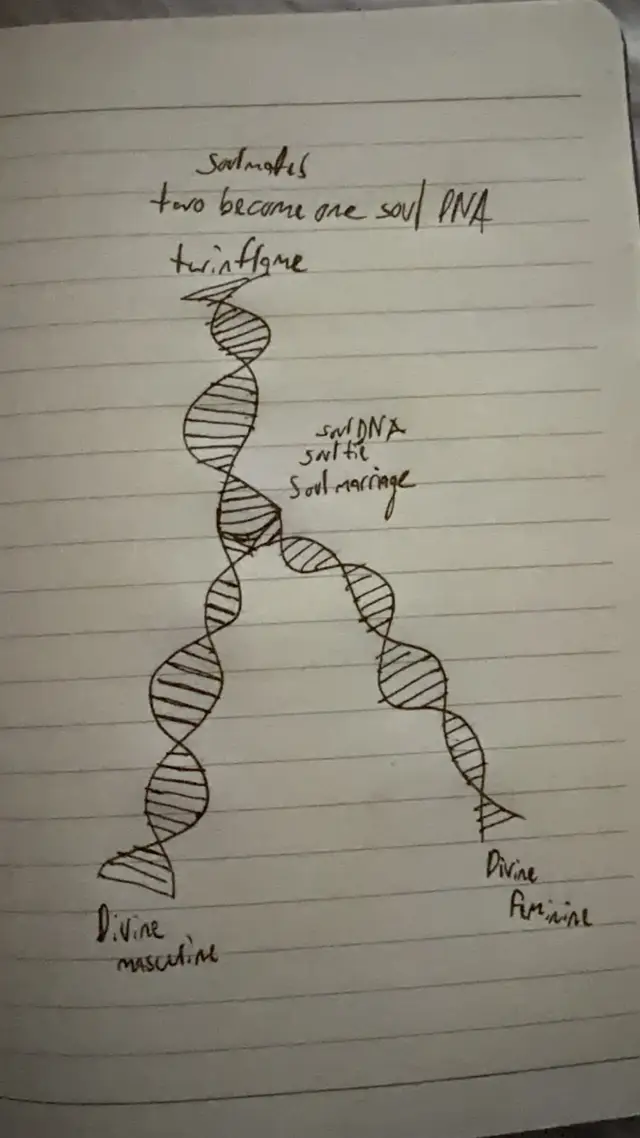 Soulmates
two become one soul DNA
twinflame
soulDNA
soultie
Soulmarriage
Divine
masculine
Divine
feminine